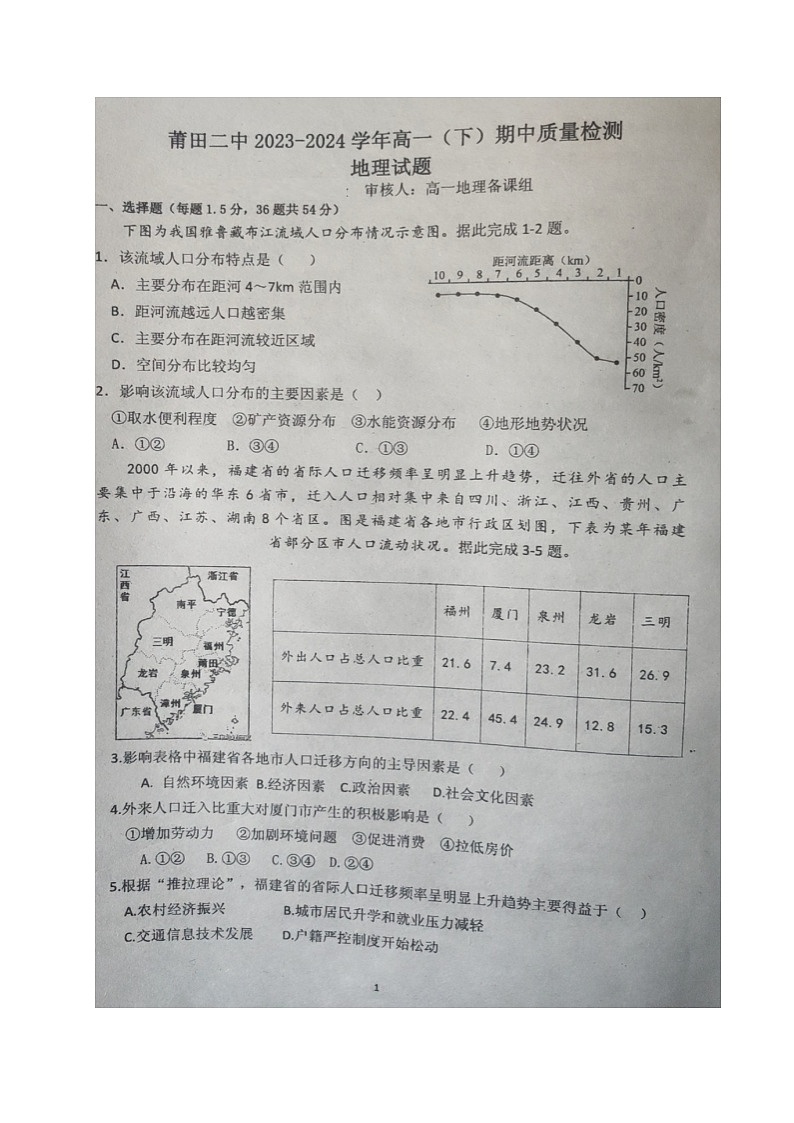 莆田二中 2023-2024 学年高一（下）期中质量检测
地理试题
： 审核人：高一地理备课组
一、选择题（每题 1.5 分，36 题共 54 分）
下图为我国雅鲁藏布江流域人口分布情况示意图。据此完成 1-2 题。
1．该流域人口分布特点是（ ）
A．主要分布在距河 4～7km 范围内
B．距河流越远人口越密集
C．主要分布在距河流较近区域
D．空间分布比较均匀
距河流距离（km）
10 9 8 7 6 5 4 3 2 1
0
10
20
30
40
50
60
70
人口密度（人/km²）
2．影响该流域人口分布的主要因素是（ ）
①取水便利程度 ②矿产资源分布 ③水能资源分布 ④地形地势状况
A．①② B．③④ C．①③ D．①④
2000 年以来，福建省的省际人口迁移频率呈明显上升趋势，迁往外省的人口主
要集中于沿海的华东 6 省市，迁入人口相对集中来自四川、浙江、江西、贵州、广
东、广西、江苏、湖南 8 个省区。图是福建省各地市行政区划图，下表为某年福建
省部分区市人口流动状况。据此完成 3-5 题。
江西省
浙江省
南平
宁德
三明
福州
莆田
龙岩
泉州
漳州
厦门
广东省
福州 厦门 泉州 龙岩 三明
外出人口占总人口比重 21.6 7.4 23.2 31.6 26.9
外来人口占总人口比重 22.4 45.4 24.9 12.8 15.3
3.影响表格中福建省各地市人口迁移方向的主导因素是（ ）
A. 自然环境因素 B.经济因素 C.政治因素 D.社会文化因素
4.外来人口迁入比重大对厦门市产生的积极影响是（ ）
①增加劳动力 ②加剧环境问题 ③促进消费 ④拉低房价
A.①② B.①③ C.③④ D.②④
5.根据“推拉理论”，福建省的省际人口迁移频率呈明显上升趋势主要得益于（ ）
A.农村经济振兴 B.城市居民升学和就业压力减轻
C.交通信息技术发展 D.户籍严控制度开始松动
1